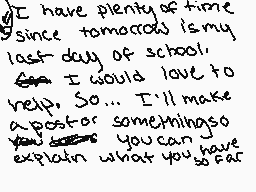 I have plenty of time
since tomorrow is my
last day of school.
I would love to
help. So... I'll make
a post or something so
you can
explain what you have so far